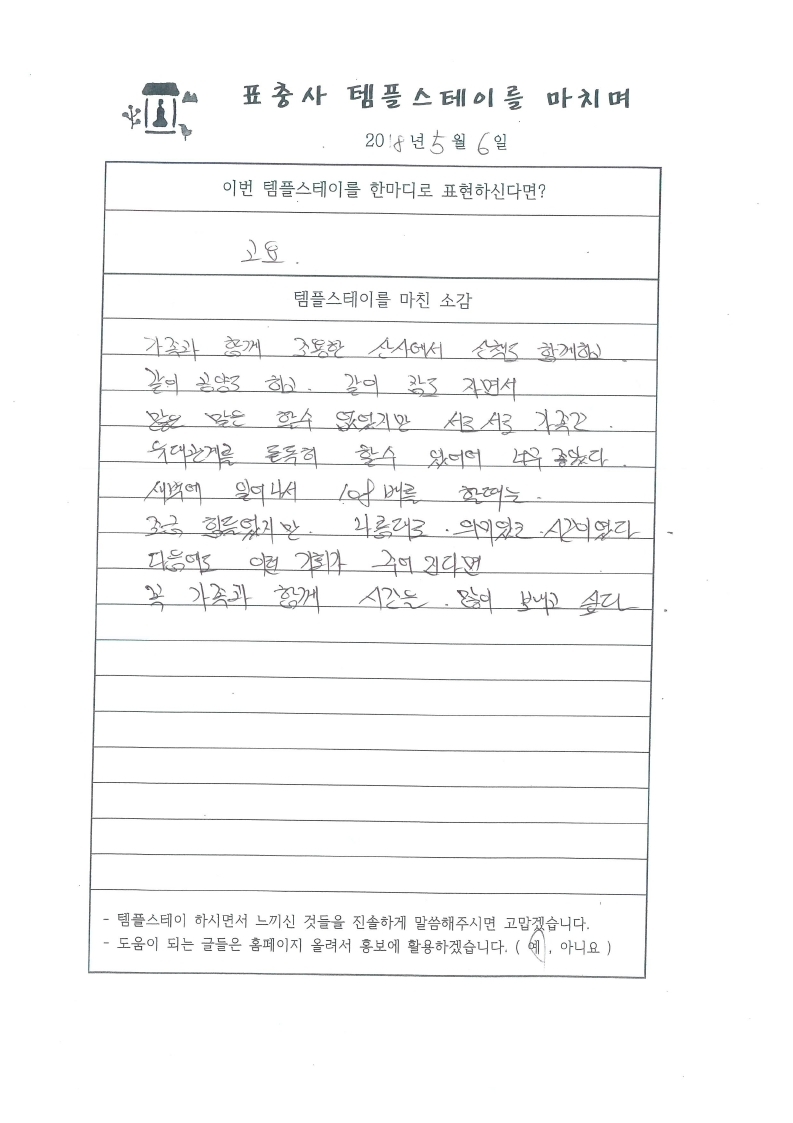 표충사 템플스테이를 마치며
2018년 5월 6일
이번 템플스테이를 한마디로 표현하신다면?
고요.
템플스테이를 마친 소감
가족과 함께 조용한 산사에서 산책도 함께하고.
같이 공양도 하고. 같이 잠도 자면서
많은 말은 할수 없었지만 서로서로 가족간.
유대관계를 돈독히 할수 있어어 너무 좋았다.
새벽에 일어나서 108배를 할때는.
조금 힘들었지만. 나름대로. 의미있는. 시간이였다
다음에도 이런 기회가 주어진다면
꼭 가족과 함께 시간을. 많이 보내고 싶다.
- 템플스테이 하시면서 느끼신 것들을 진솔하게 말씀해주시면 고맙겠습니다.
- 도움이 되는 글들은 홈페이지 올려서 홍보에 활용하겠습니다. ( 예 , 아니요 )